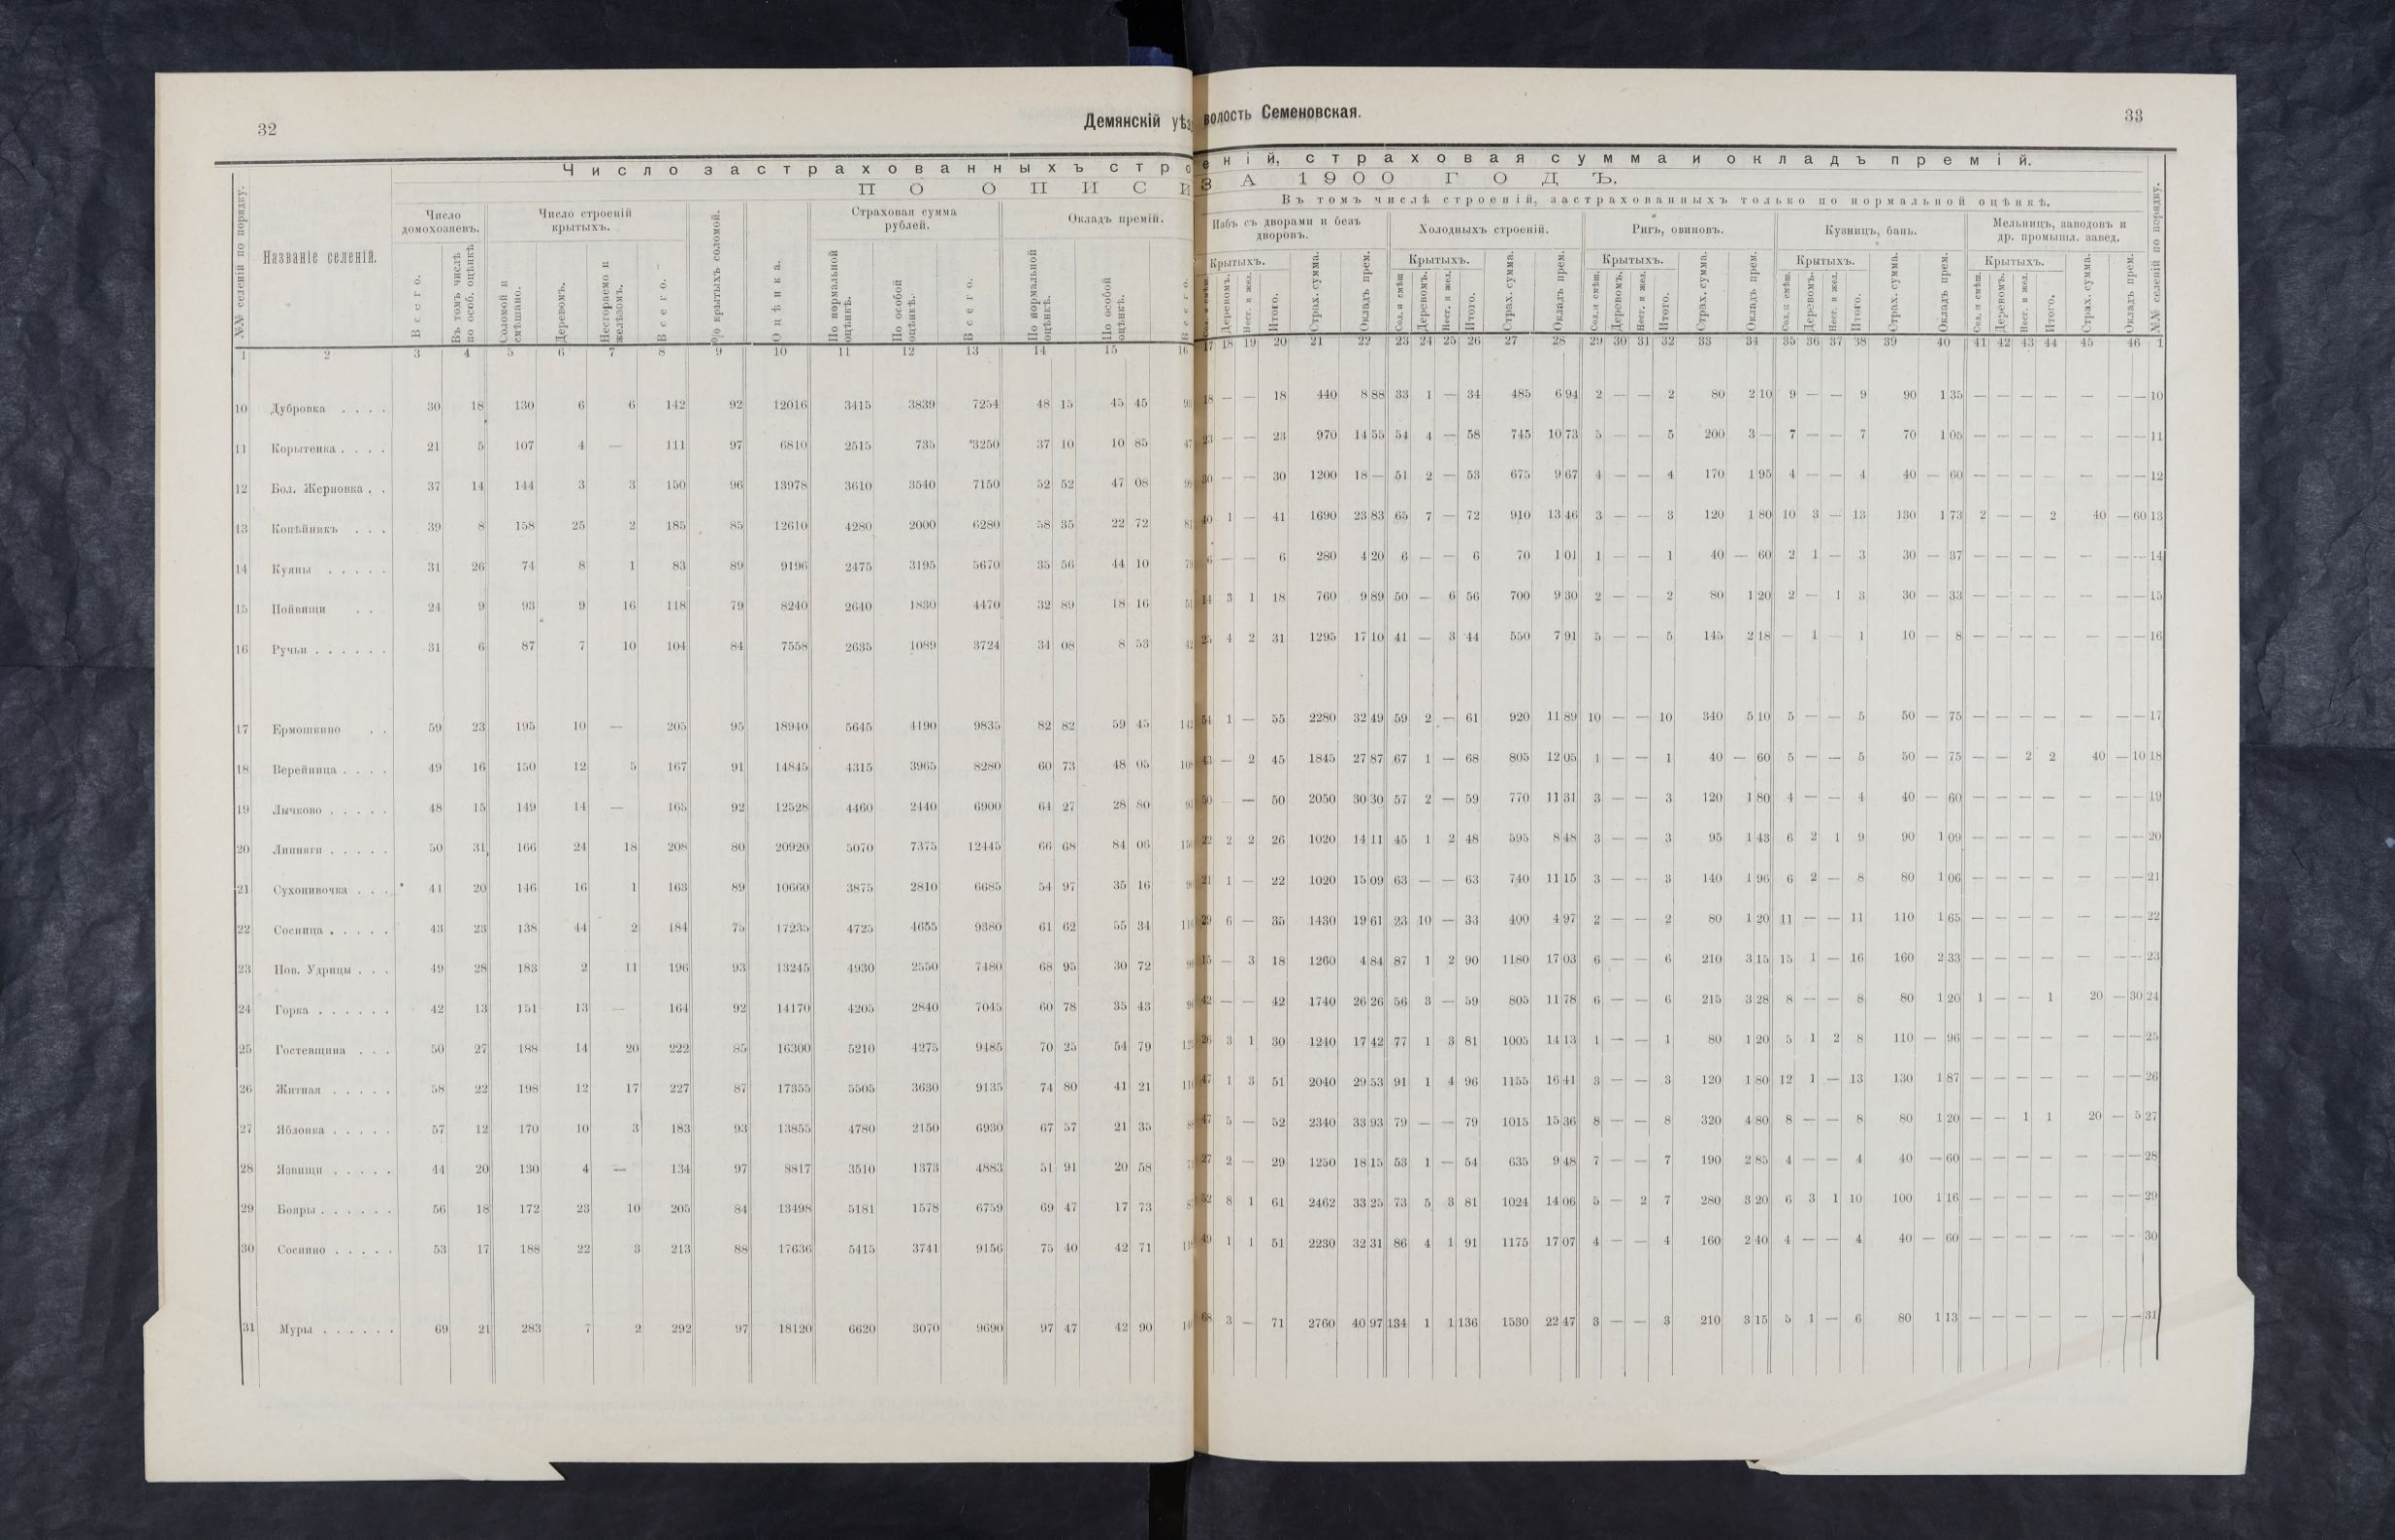 32
Демянскій уѣз
Число застрахованныхъ стро
ПО ОПИСИ
№№ селеній по порядку.
Названіе селеній.
Число домохозяевъ.
Всего.
Въ томъ числѣ по особ. оцѣнкѣ
Число строеній крытыхъ.
Соломой и смѣшано.
Деревомъ.
Несгораемо и желѣзомъ.
Всего.
% крытыхъ соломой.
Оцѣнка.
Страховая сумма рублей.
По нормальной оцѣнкѣ.
По особой оцѣнкѣ.
Всего.
Окладъ премій.
По нормальной оцѣнкѣ.
По особой оцѣнкѣ.
Всего.
1 2 3 4 5 6 7 8 9 10 11 12 13 14 15 16
10 Дубровка . . . . 30 18 130 6 6 142 92 12016 3415 3839 7254 48 15 45 45
11 Корытенка . . . . 21 5 107 4 — 111 97 6810 2515 735 3250 37 10 10 85
12 Бол. Жерновка . . 37 14 144 3 3 150 96 13978 3610 3540 7150 52 52 47 08
13 Копѣйникъ . . . 39 8 158 25 2 185 85 12610 4280 2000 6280 58 35 22 72
14 Куяны . . . . . 31 26 74 8 1 83 89 9196 2475 3195 5670 35 56 44 10
15 Пойвищи . . 24 9 93 9 16 118 79 8240 2640 1830 4470 32 89 18 16
16 Ручьи . . . . . . 31 6 87 7 10 104 84 7558 2635 1089 3724 34 08 8 53
17 Ермошкино . . 59 23 195 10 — 205 95 18940 5645 4190 9835 82 82 59 45
18 Верейница . . . . 49 16 150 12 5 167 91 14845 4315 3965 8280 60 73 48 05
19 Лычково . . . . . 48 15 149 14 — 163 92 12528 4460 2440 6900 64 27 28 80
20 Липняги . . . . . 50 31 166 24 18 208 80 20920 5070 7375 12445 66 68 84 06
21 Сухонивочка . . . 41 20 146 16 1 163 89 10660 3875 2810 6685 54 97 35 16
22 Сосница . . . . . 43 23 138 44 2 184 75 17235 4725 4655 9380 61 62 55 34
23 Нов. Удрицы . . . 49 28 183 2 11 196 93 13245 4930 2550 7480 68 95 30 72
24 Горка . . . . . . 42 13 151 13 — 164 92 14170 4205 2840 7045 60 78 35 43
25 Гостевщина . . . 50 27 188 14 20 222 85 16300 5210 4275 9485 70 25 54 79
26 Житная . . . . . 58 22 198 12 17 227 87 17355 5505 3630 9135 74 80 41 21
27 Яблонка . . . . . 57 12 170 10 3 183 93 13855 4780 2150 6930 67 57 21 35
28 Язвищи . . . . . 44 20 130 4 — 134 97 8817 3510 1373 4883 51 91 20 58
29 Бояры . . . . . . 56 18 172 23 10 205 84 13498 5181 1578 6759 69 47 17 73
30 Соснино . . . . . 53 17 188 22 3 213 88 17636 5415 3741 9156 75 40 42 71
31 Муры . . . . . . 69 21 283 7 2 292 97 18120 6620 3070 9690 97 47 42 90
волость Семеновская.
33
еній, страховая сумма и окладъ премій.
ЗА 1900 ГОДЪ.
Въ томъ числѣ строеній, застрахованныхъ только по нормальной оцѣнкѣ.
Избъ съ дворами и безъ дворовъ.
Холодныхъ строеній.
Ригъ, овиновъ.
Кузницъ, бань.
Мельницъ, заводовъ и др. промышл. завед.
Крытыхъ. Крытыхъ. Крытыхъ. Крытыхъ. Крытыхъ.
Деревомъ. Несг. и жел. Итого. Страх. сумма. Окладъ прем.
Сол. и смѣш Деревомъ. Несг. и жел. Итого. Страх. сумма. Окладъ прем.
Сол. и смѣш. Деревомъ. Несг. и жел. Итого. Страх. сумма. Окладъ прем.
Сол. и смѣш. Деревомъ. Несг. и жел. Итого. Страх. сумма. Окладъ прем.
Сол. и смѣш. Деревомъ. Несг. и жел. Итого. Страх. сумма. Окладъ прем.
№№ селеній по порядку.
17 18 19 20 21 22 23 24 25 26 27 28 29 30 31 32 33 34 35 36 37 38 39 40 41 42 43 44 45 46 1
18 — — 18 440 8 88 33 1 — 34 485 6 94 2 — — 2 80 2 10 9 — — 9 90 1 35 — — — — — — — 10
23 — — 23 970 14 55 54 4 — 58 745 10 73 5 — — 5 200 3 — 7 — — 7 70 1 05 — — — — — — — 11
30 — — 30 1200 18 — 51 2 — 53 675 9 67 4 — — 4 170 1 95 4 — — 4 40 — 60 — — — — — — — 12
40 1 — 41 1690 23 83 65 7 — 72 910 13 46 3 — — 3 120 1 80 10 3 — 13 130 1 73 2 — — 2 40 — 60 13
6 — — 6 280 4 20 6 — — 6 70 1 01 1 — — 1 40 — 60 2 1 — 3 30 — 37 — — — — — — — 14
14 3 1 18 760 9 89 50 — 6 56 700 9 30 2 — — 2 80 1 20 2 — 1 3 30 — 33 — — — — — — — 15
25 4 2 31 1295 17 10 41 — 3 44 550 7 91 5 — — 5 145 2 18 — 1 — 1 10 — 8 — — — — — — — 16
54 1 — 55 2280 32 49 59 2 — 61 920 11 89 10 — — 10 340 5 10 5 — — 5 50 — 75 — — — — — — — 17
43 — 2 45 1845 27 87 67 1 — 68 805 12 05 1 — — 1 40 — 60 5 — — 5 50 — 75 — — 2 2 40 — 10 18
50 — 50 2050 30 30 57 2 — 59 770 11 31 3 — — 3 120 1 80 4 — — 4 40 — 60 — — — — — — — 19
22 2 2 26 1020 14 11 45 1 2 48 595 8 48 3 — — 3 95 1 43 6 2 1 9 90 1 09 — — — — — — — 20
21 1 — 22 1020 15 09 63 — — 63 740 11 15 3 — — 3 140 1 96 6 2 — 8 80 1 06 — — — — — — — 21
29 6 — 35 1430 19 61 23 10 — 33 400 4 97 2 — — 2 80 1 20 11 — — 11 110 1 65 — — — — — — — 22
15 — 3 18 1260 4 84 87 1 2 90 1180 17 03 6 — — 6 210 3 15 15 1 — 16 160 2 33 — — — — — — — 23
42 — — 42 1740 26 26 56 3 — 59 805 11 78 6 — — 6 215 3 28 8 — — 8 80 1 20 1 — — 1 20 — 30 24
26 3 1 30 1240 17 42 77 1 3 81 1005 14 13 1 — — 1 80 1 20 5 1 2 8 110 — 96 — — — — — — — 25
47 1 3 51 2040 29 53 91 1 4 96 1155 16 41 3 — — 3 120 1 80 12 1 — 13 130 1 87 — — — — — — — 26
47 5 — 52 2340 33 93 79 — — 79 1015 15 36 8 — — 8 320 4 80 8 — — 8 80 1 20 — — 1 1 20 — 5 27
27 2 — 29 1250 18 15 53 1 — 54 635 9 48 7 — — 7 190 2 85 4 — — 4 40 — 60 — — — — — — — 28
52 8 1 61 2462 33 25 73 5 3 81 1024 14 06 5 — 2 7 280 3 20 6 3 1 10 100 1 16 — — — — — — — 29
49 1 1 51 2230 32 31 86 4 1 91 1175 17 07 4 — — 4 160 2 40 4 — — 4 40 — 60 — — — — — — — 30
68 3 — 71 2760 40 97 134 1 1 136 1530 22 47 3 — — 3 210 3 15 5 1 — 6 80 1 13 — — — — — — — 31